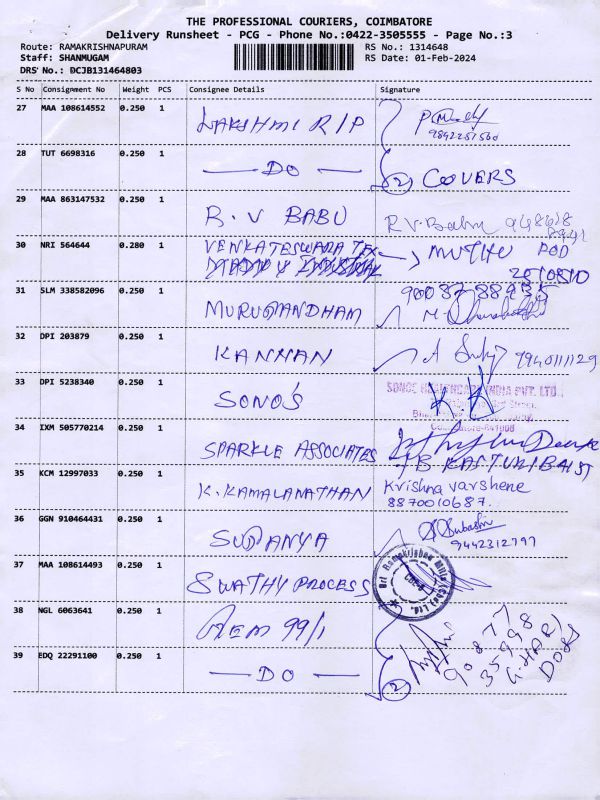 THE PROFESSIONAL COURIERS, COIMBATORE
Delivery Runsheet - PCG - Phone No.:0422-3505555 - Page No.:3
Route: RAMAKRISHNAPURAM
Staff: SHANMUGAM
DRS No.: DCJB131464803
RS No.: 1314648
RS Date: 01-Feb-2024
S No Consignment No Weight PCS Consignee Details Signature
27 MAA 108614552 0.250 1 LAKSHMI R/P
28 TUT 6698316 0.250 1 DO (2) COVERS
29 MAA 863147532 0.250 1 R.V BABU R.V. Babu
30 NRI 564644 0.280 1 VENKATESWARA TEX MUTHU POD
31 SLM 338582096 0.250 1 MURUGANDHAM
32 DPI 203879 0.250 1 KANNAN 9940111129
33 DPI 5238340 0.250 1 SONO'S K.K
34 IXM 505770214 0.250 1 SPARKLE ASSOCIATES
35 KCM 12997033 0.250 1 K.KAMALANATHAN Krishna varshene
8870010687.
36 GGN 910464431 0.250 1 SUGANYA Subashri
9442312797
37 MAA 108614493 0.250 1 SWATHY PROCESS Sri Ramakrishna Mills (Cbe) Ltd.
38 NGL 6063641 0.250 1 GEM 99/1
39 EDQ 22291100 0.250 1 DO (2)
90877
35998